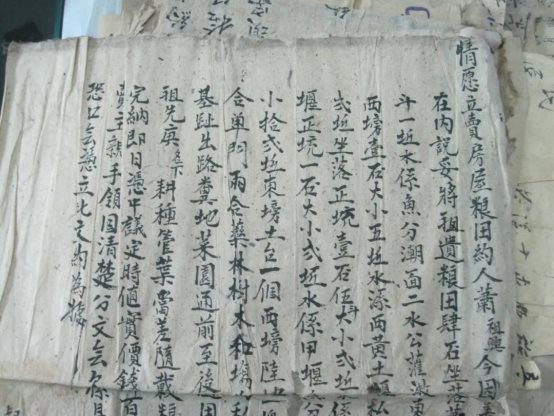 情愿立賣房屋粮田約人蕭祖興今因
在内說妥將祖遺粮田肆石坐落
斗一坵水係魚分潮面二水公灌溉東
西塝壹石大小五坵水係西黄土堰私
弍坵坐落正坑壹石伍斗大小弍坵
堰正坑一石大小弍坵水係甲堰公分
小拾弍坵東塝土台一個西塝陸
合单門兩合藥林樹木和塲
基趾出路糞地菜園道前至後
祖先庚 耕種管葉需差隨載粮
完納即日憑中議定時值實價錢百
賣主親手領囯清楚分文会

恐口会憑立此文約為據